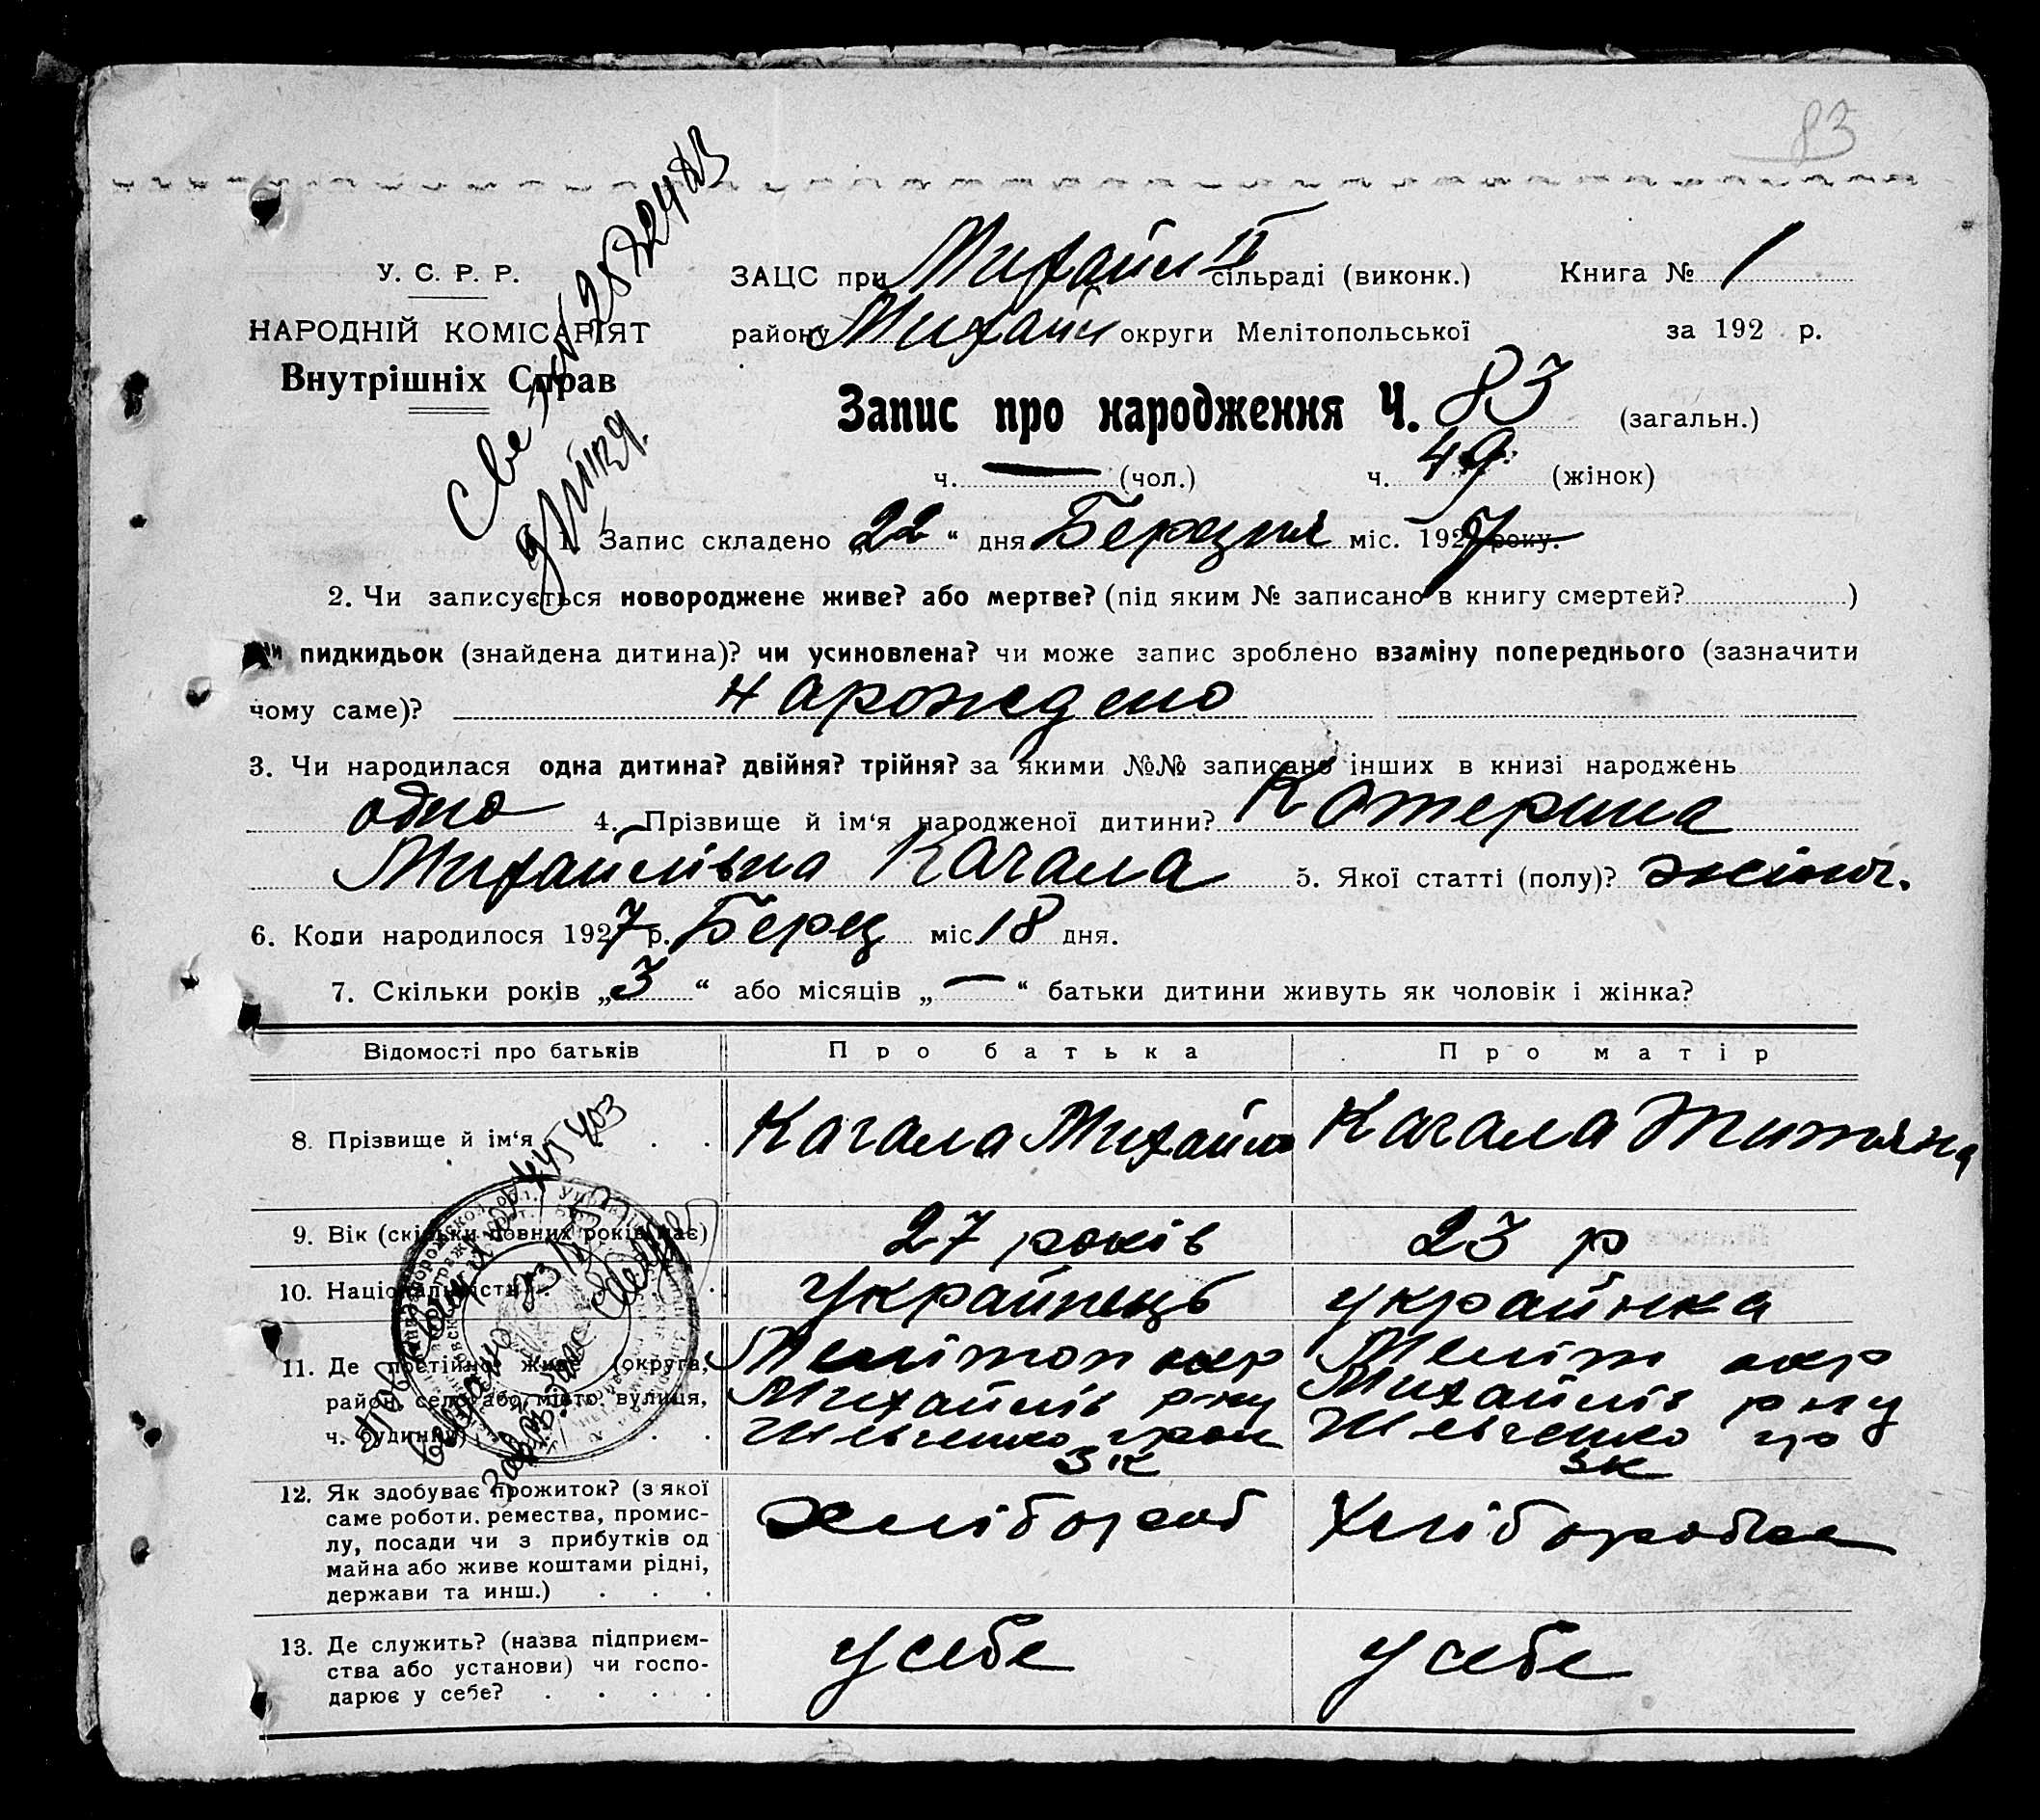 83
У. С. Р. Р.
НАРОДНІЙ КОМІСАРІЯТ
Внутрішніх Справ
ЗАЦС при Михайл II сільраді (виконк.) Книга № 1
району Михайл округи Мелітопольської за 192 р.
Запис про народження Ч. 83 (загальн.)
ч. — (чол.) ч. 49 (жінок)
1. Запис складено „22“ дня Березня міс. 1927 року.
2. Чи записується новороджене живе? або мертве? (під яким № записано в книгу смертей? )
чи пидкидьок (знайдена дитина)? чи усиновлена? чи може запис зроблено взаміну попереднього (зазначити
чому саме)? нарожедено
3. Чи народилася одна дитина? двійня? трійня? за якими №№ записано інших в книзі народжень
одно 4. Прізвище й ім‘я народженої дитини? Катерина
Михайлівна Качала 5. Якої статті (полу)? жіноч.
6. Коли народилося 1927 р. Берез міс 18 дня.
7. Скільки років „3“ або місяців „—“ батьки дитини живуть як чоловік і жінка?
Відомості про батьків Про батька Про матір
8. Прізвище й ім‘я Качала Михайло Качала Титяна
9. Вік (скільки повних років має) 27 років 23 р
10. Національність Украйнець украйнка
11. Де постійно живе (округа, Мелітоп окр Меліт окр
район, село або місто, вулиця, Михайлів р-ну Михайлів р ну
ч. будинку) Шевченко Шевченко
12. Як здобуває прожиток? (з якої
саме роботи, ремества, промис-
лу, посади чи з прибутків од
майна або живе коштами рідні,
держави та инш.) хлібороб Хліборобка
13. Де служить? (назва підприєм-
ства або установи) чи госпо-
дарює у себе? у себе у себе